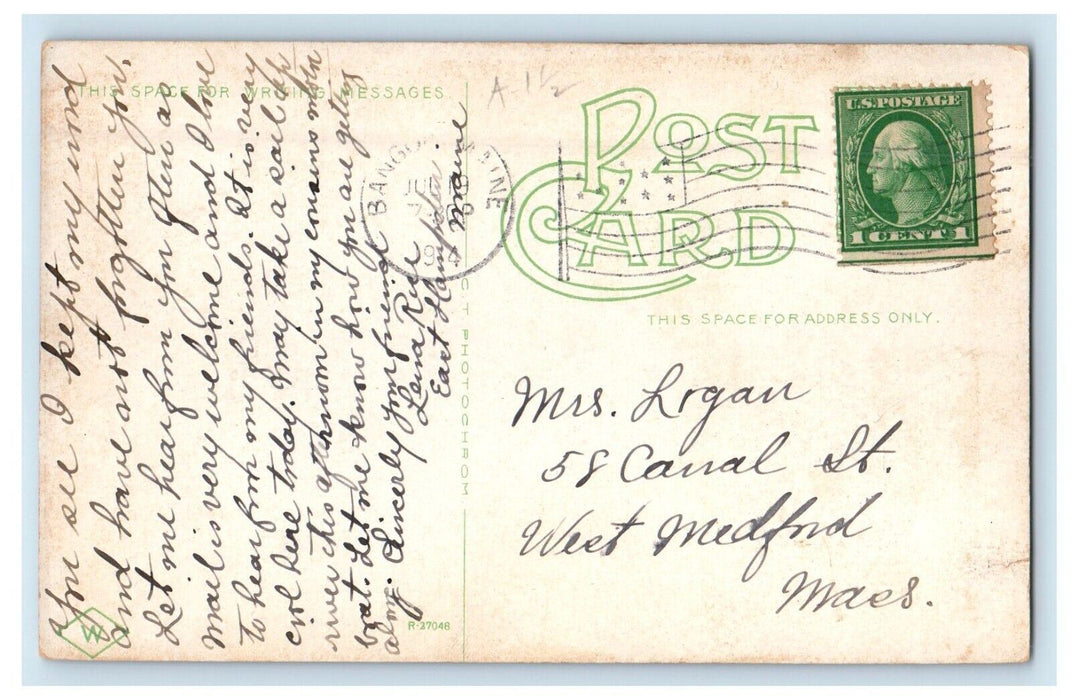 THIS SPACE FOR WRITING MESSAGES
You see I kept my mind
and have not forgotten you.
Let me hear from you often as
mail is very welcome and I love
to hear from my friends. It is very
cool here today. May take a sail up
river this afternoon in my cousins motor
boat. Let me know how you are getting
along. Sincerely your friend
Lena Rice
East Hampden.
Maine
A-1½
BANGOR MAINE
1914
POST
CARD
U.S. POSTAGE
1 CENT 1
THIS SPACE FOR ADDRESS ONLY.
PHOTOCHROM
Mrs. Logan
58 Canal St.
West Medford
Mass.
W
R-27046